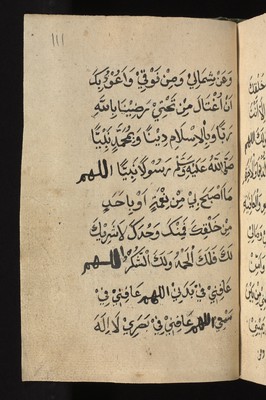 ١١١
وعن شمالي ومن فوقي واعوذ بك
ان أغتال من تحتي رضينا بالله
ربا وبالاسلام دينا وبمحمد نبيا
صلى الله عليه وسلم رسولا نبيا اللهم
ما اصبح بي من نعمة او باحد
من خلقك فمنك وحدك لا شريك
لك فلك الحمد ولك الشكر اللهم
عافني في بدني اللهم عافني في
سمعي اللهم عافني في بصري لا اله